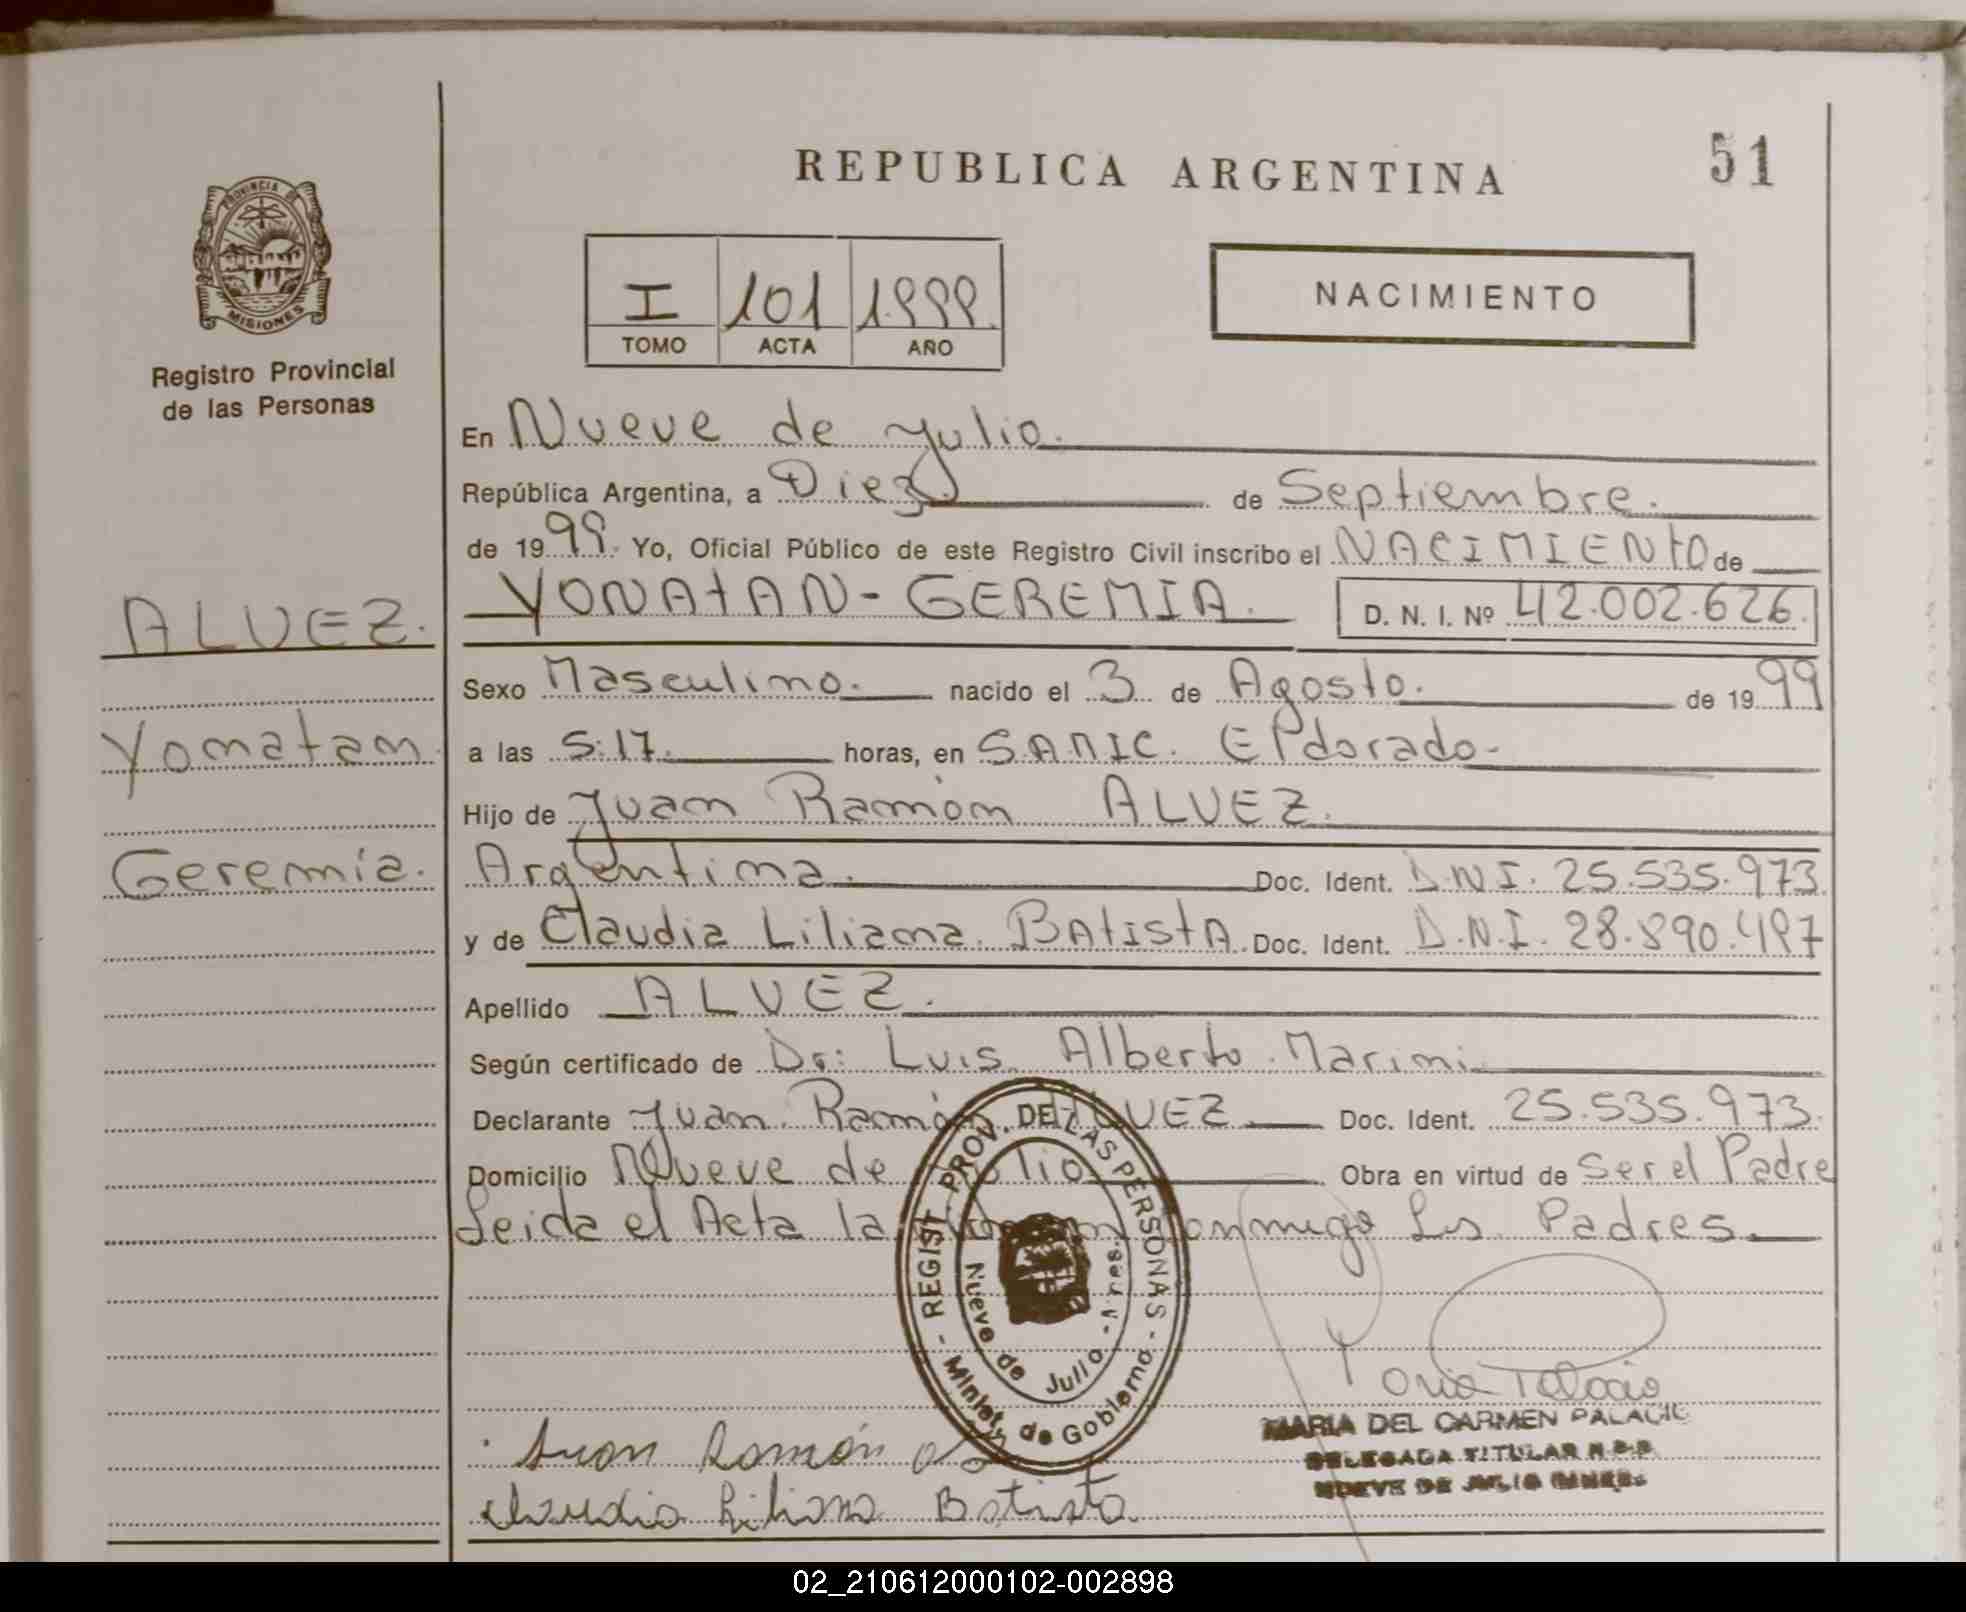 REPUBLICA ARGENTINA
51
PROVINCIA DE
MISIONES
Registro Provincial
de las Personas
I 101 1999
TOMO ACTA AÑO
NACIMIENTO
En Nueve de Julio.
República Argentina, a Diez de Septiembre.
de 1999. Yo, Oficial Público de este Registro Civil inscribo el NACIMIENTO de
ALVEZ.
YONATAN-GEREMIA. D. N. I. Nº 42.002.626.
Sexo Masculino. nacido el 3 de Agosto. de 1999
Yonatan
a las 5:17. horas, en S.A.M.I.C. Eldorado-
Hijo de Juan Ramón ALVEZ.
Geremía.
Argentina. Doc. Ident. D.N.I. 25.535.973.
y de Claudia Liliana BATISTA. Doc. Ident. D.N.I. 28.890.497
Apellido ALVEZ.
Según certificado de Dr: Luis Alberto Marini
Declarante Juan Ramón ALVEZ Doc. Ident. 25.535.973.
Domicilio Nueve de Julio Obra en virtud de Ser el Padre
Leida el Acta la conmigo Los Padres.
REGIST. PROV. DE LAS PERSONAS
Nueve de Julio - Mnes.
Minist. de Gobierno
MARIA DEL CARMEN PALACIO
DELEGADA TITULAR R.P.P.
NUEVE DE JULIO (MNES.)
Juan Ramón
Claudia Liliana Batista
02_210612000102-002898